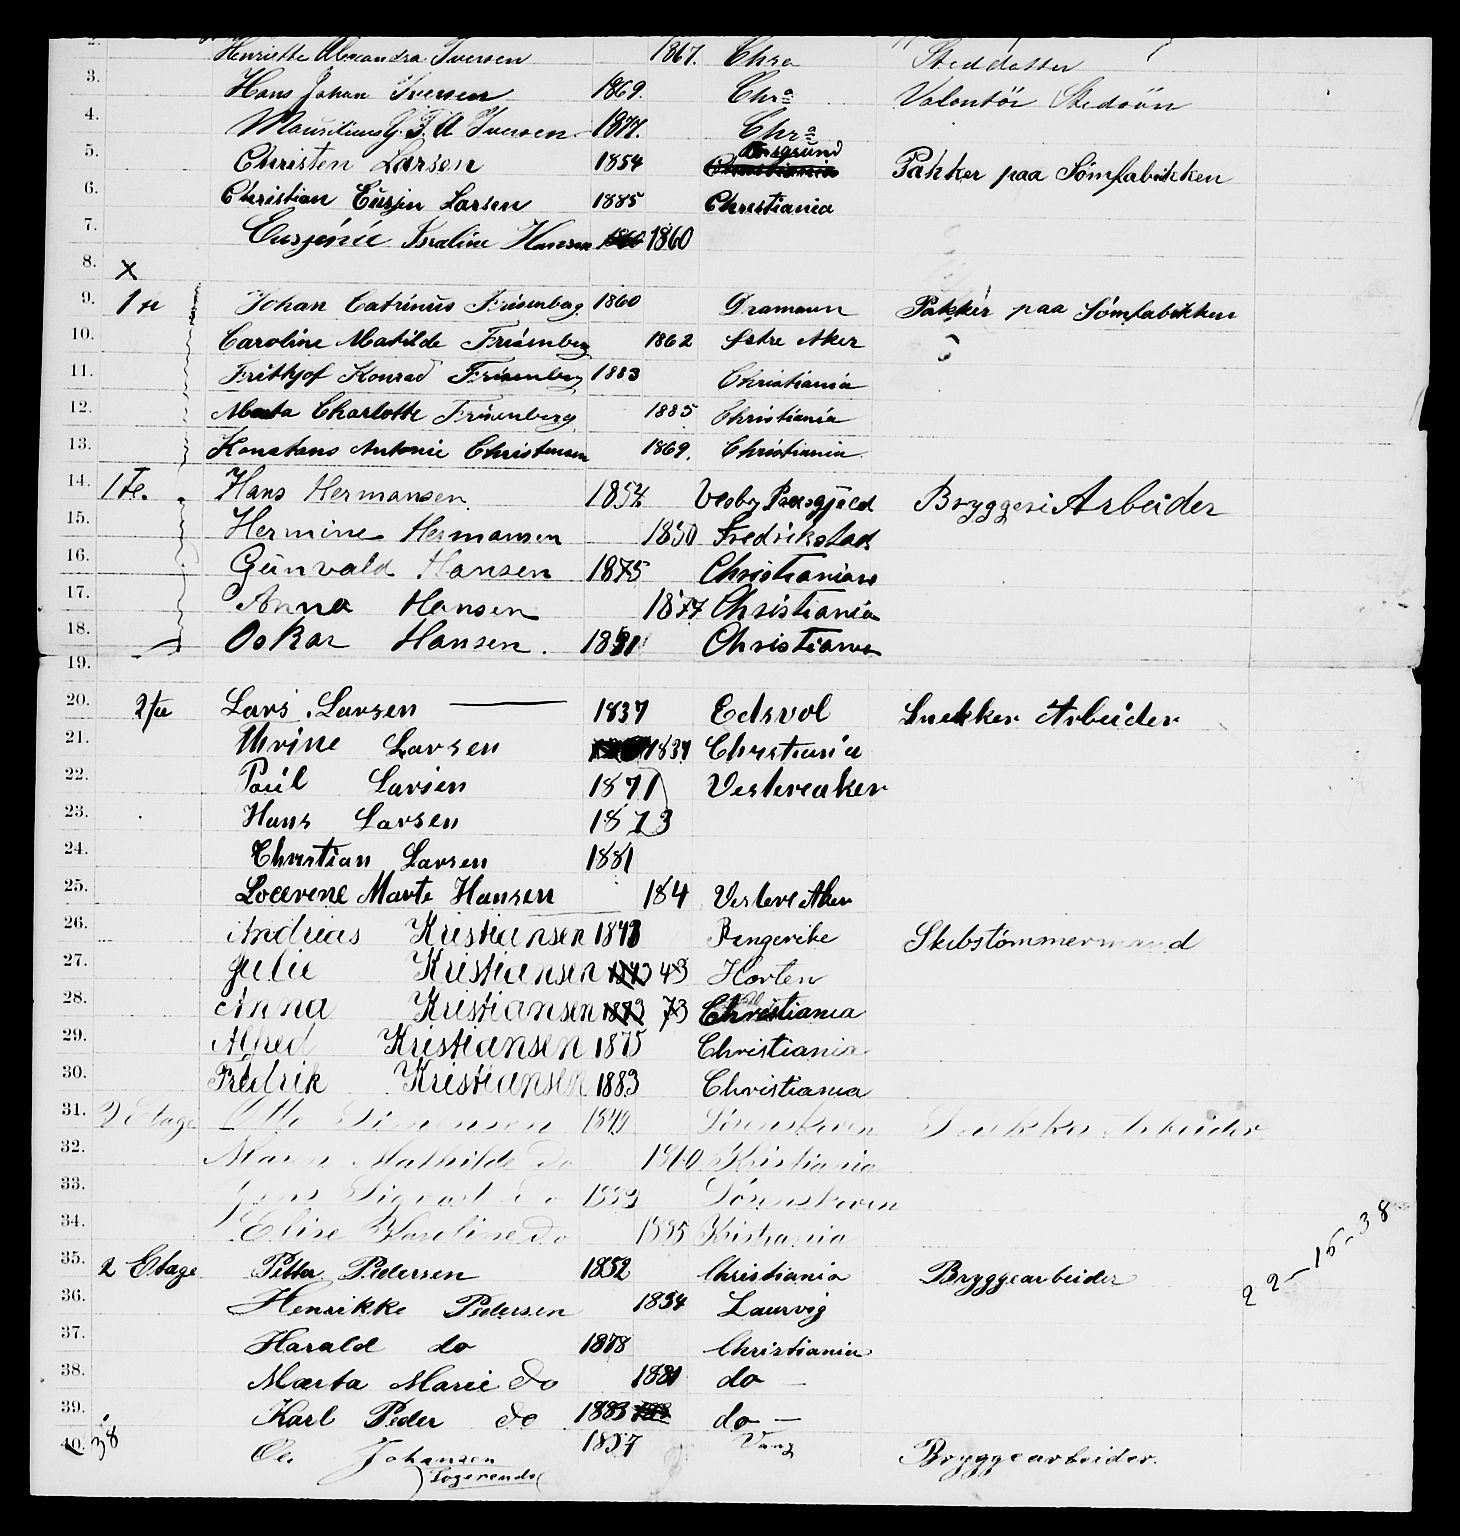 2. Henriette Alexandra Iversen 1867. Chra Steddatter
3. Hans Johan Iversen 1869. Chra Volontör Stedsön
4. Iversen 1877. Chra
Porsgrund
5. Christen Larsen 1854 Christiania Pakker paa Sömfabrikken
6. Christian Eugen Larsen 1885 Christiania
7. Hansen 1860 1860
8. X
9. 1 te Johan Catrinus Frisenberg 1860 Drammen Pakker paa Sömfabrikken
10. Caroline Matilde Frisenberg 1862 Østre Aker
11. Frithjof Konrad Frisenberg 1883 Christiania
12. Marta Charlotte Frisenberg 1885 Christiania
13. Konstans Antonie Christensen 1869. Christiania
14. 1 te. Hans Hermansen 1854 Vesby Præsgjæld Bryggeri Arbeider
15. Hermine Hermansen 1850 Fredrikstad
16. Günvald Hansen 1875 Christiania
17. Anna Hansen 1877 Christiania
18. Oskar Hansen. 1881 Christiania
19.
20. 2/te Lars Larsen — 1837 Edsvol Snekker Arbeider
21. Thrine Larsen 1837 Christiania
22. Paúl Larsen 1871 Vestreaker
23. Hans Larsen 1873
24. Christian Larsen 1881
25. Marte Hansen 184 Vestre Aker
26. Andreas Kristiansen 1843 Ringerike Skibstömmermand
27. Julie Kristiansen 1843 43 Horten
28. Anna Kristiansen 1873 73 Christiania
29. Alfred Kristiansen 1875 Christiania
30. Fredrik Kristiansen 1883 Christiania
31. 2 Etage Otto Simensen 1849 Snekker Arbeider
32. Maren Mathilde do Kristiania
33. Jens Sigvart do
34. Elise Pauline do 1885 Kristiania
35. 2 Etage Petter Pedersen 1852 Christiania Bryggearbeider
22–15–38
36. Henrikke Pedersen 1854 Laurvig
37. Harald do 1878 Christiania
38. Marta Marie do 1881 do —
39. Karl Peder do 1883 do —
40. 38 Ole Johansen 1857 Vang Bryggearbeider.
(Logerende)